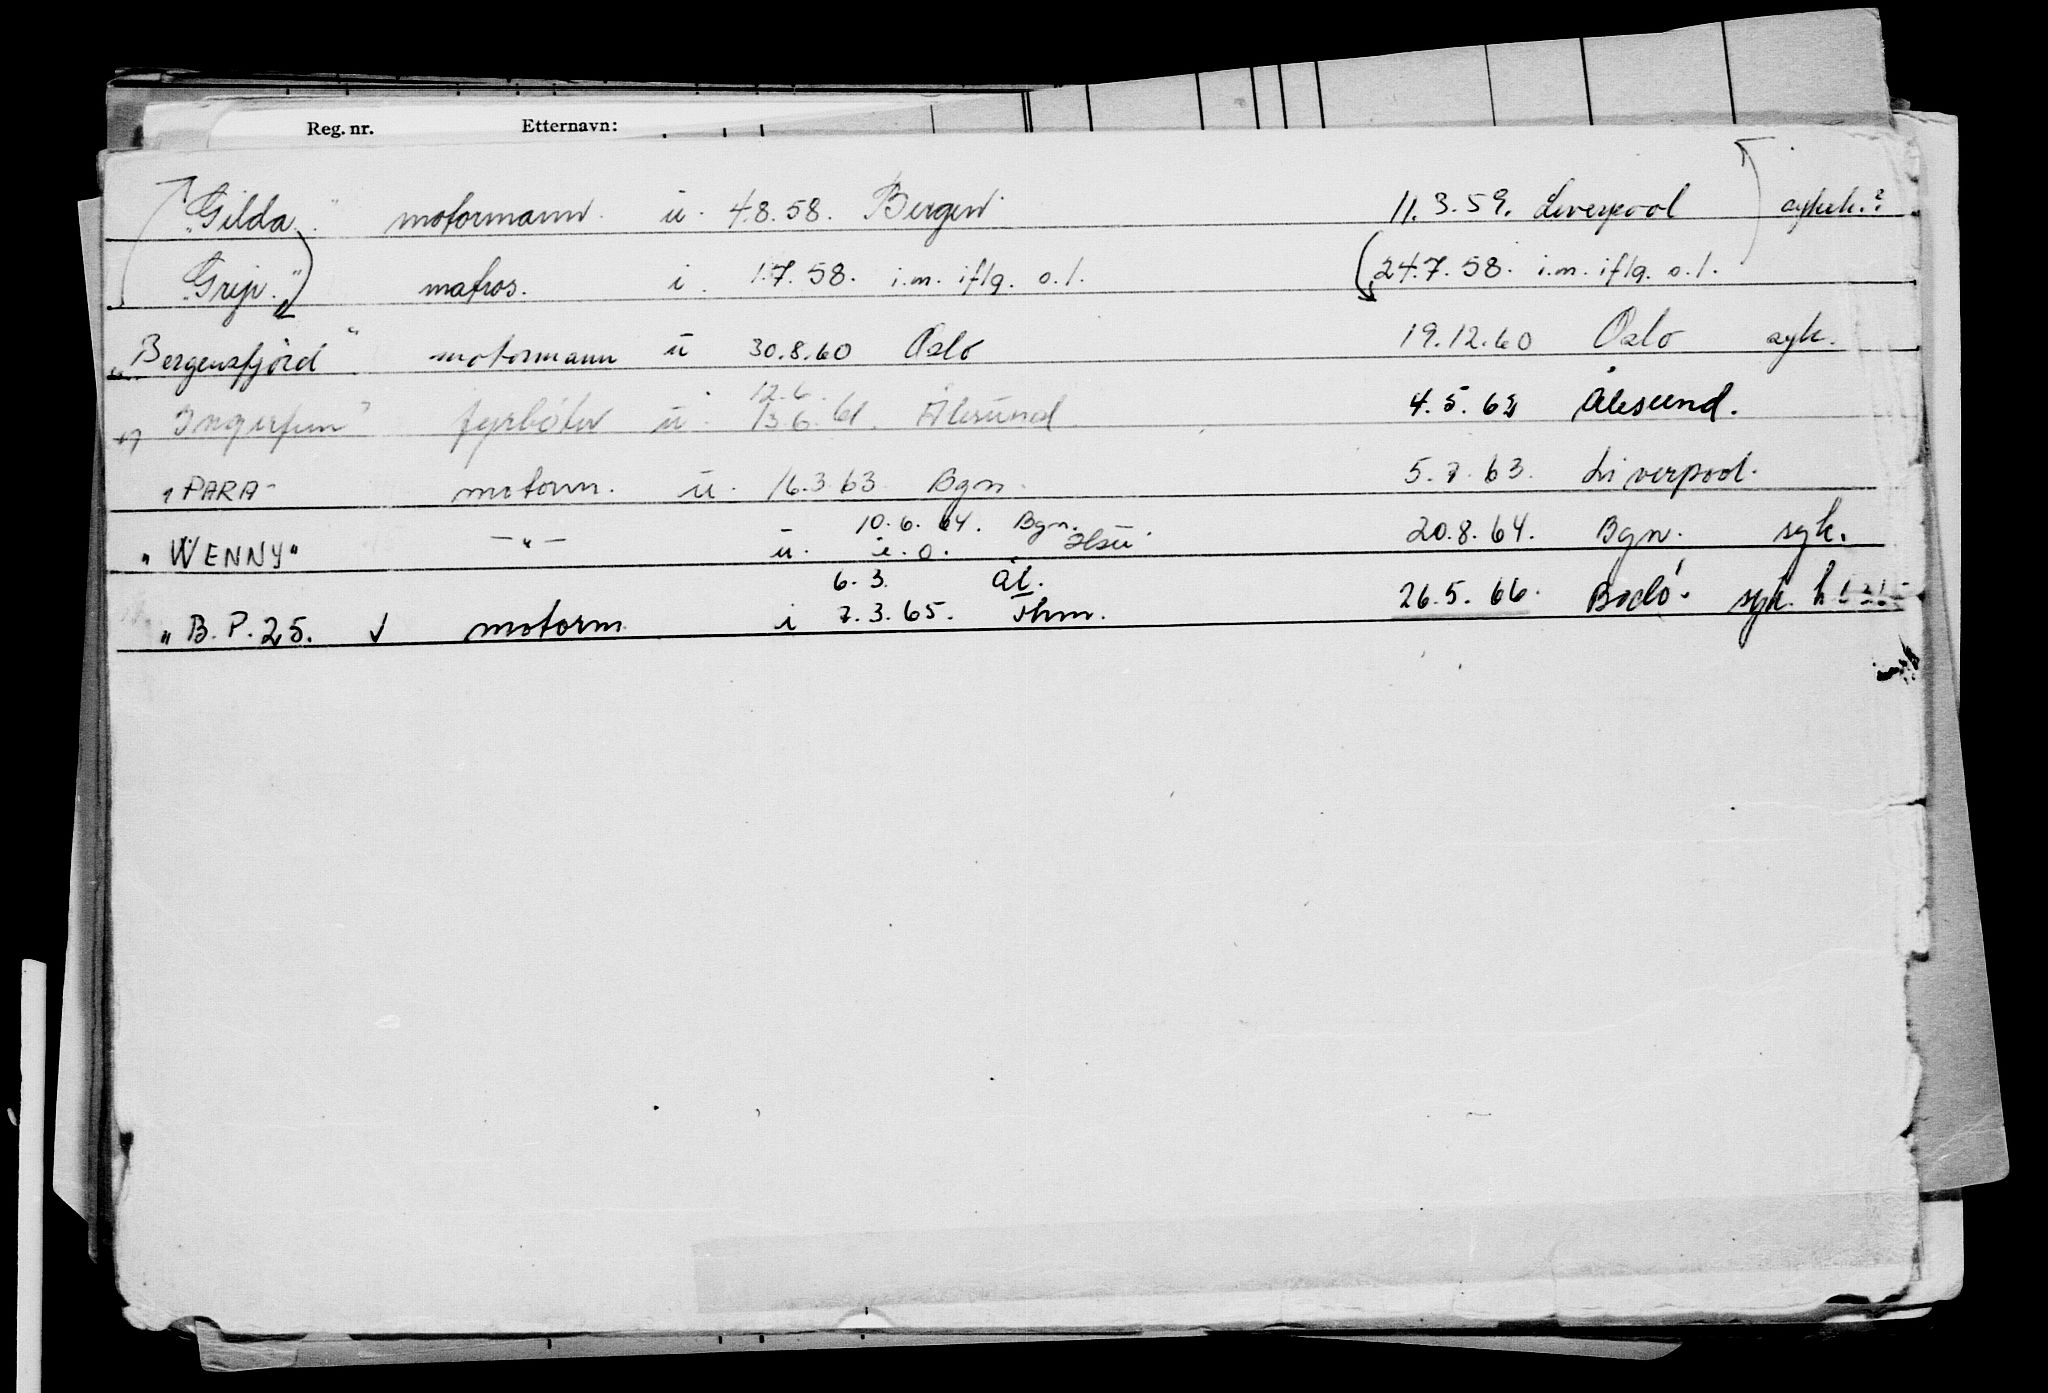 Reg. nr. Etternavn:
"Gilda" motormann. u. 4.8.58. Bergen. 11.3.59. Liverpool
"Grip." matros. i. 1.7.58. i.m. iflg. o.l. 24.7.58. i.m. iflg. o.l.
"Bergensfjord" motormann u 30.8.60 Oslo 19.12.60 Oslo syk.
12.6.
fyrbøter u. 13.6.61. Ålesund. 4.5.62 Ålesund.
"PARA" motorm. u. 16.3.63 Bgn. 5.7.63. Liverpool.
10.6.64. Bgn.
"WENNY" —"— u. i.o. 20.8.64. Bgn. syk.
6.3. Ål.
"B.P.25. motorm. i 7.3.65. Thm. 26.5.66. Bodö. syk.